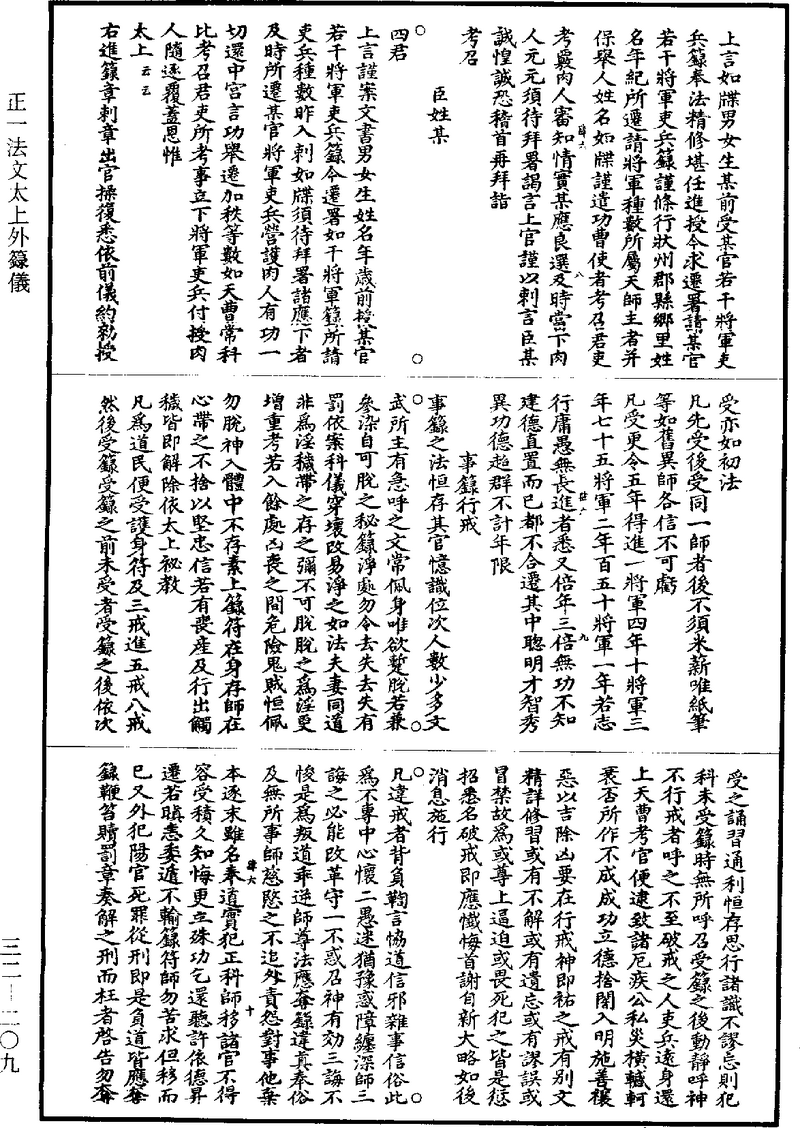 正一法文太上外籙儀
三二—二〇九
上言如牒男女生某前受某官若干將軍吏
兵籙奉法精修堪任進授今求遷署請某官
若干將軍吏兵籙謹條行狀州郡縣鄉里姓
名年紀所遷請將軍種數所屬天師主者并
保舉人姓名如牒謹遣功曹使者考召君吏
考覈肉人審知情實某應良選及時當下肉
人元元須待拜署謁言上官謹以刺言臣某
誠惶誠恐稽首再拜詣
臣姓某
考召
四君
上言謹案文書男女生姓名年歲前授某官
若干將軍吏兵籙今遷署如干將軍籙所請
吏兵種數昨入刺如牒須待拜署諸應下者
及時所遷某官將軍吏兵營護肉人有功一
切還中宮言功舉遷加秩等數如天曹常科
比考召君吏所考事立下將軍吏兵付授肉
人隨逐覆蓋思惟
太上云云
右進籙章刺章出官操復悉依前儀約勑授
受亦如初法
凡先受後受同一師者後不須米薪唯紙筆
等如舊異師各信不可虧
凡受更令五年得進一將軍四年十將軍三
年七十五將軍二年百五十將軍一年若志
行庸愚無長進者悉又倍年三倍無功不知
建德直置而已都不合遷其中聰明才智秀
異功德超群不計年限
事籙行戒
事籙之法恒存其官憶識位次人數少多文
武所主有急呼之文常佩身唯欲蹔脫若兼
參染自可脫之秘籙淨處勿令去失去失有
罰依案科儀穿壞改易淨之如法夫妻同道
非為淫穢帶之存之彌不可脫脫之為淫更
增重考若入餘處凶喪之間危險鬼賊恒佩
勿脫神入體中不存素上籙符在身存師在
心帶之不捨以堅忠信若有喪產及行出觸
穢皆即解除依太上祕教
凡為道民便受護身符及三戒進五戒八戒
然後受籙受籙之前未受者受籙之後依次
受之誦習通利恒存思行諸識不謬忘則犯
科未受籙時無所呼召受籙之後動靜呼神
不行戒者呼之不至破戒之人吏兵遠身還
上天曹考官便逮致諸厄疾公私災橫轗軻
衰否所作不成成功立德捨闇入明施善禳
惡以吉除凶要在行戒神即祐之戒有別文
精詳修習或有不解或有遺忘或有謬誤或
冒禁故為或尊上逼迫或畏死犯之皆是愆
招悉名破戒即應懺悔首謝自新大略如後
消息施行
凡違戒者背負鞫言恊道信邪雜事信俗此
為不專中心懷二愚迷猶豫惑障纏深師三
誨之必能改革守一不惑召神有効三誨不
悛是為叛道乖逆師尊法應奪籙違真奉俗
及無所事師慈愍之不追外責怨對事他棄
本逐末雖名奉道實犯正科師移諸官不得
容受積久知悔更立殊功乞還聽許依德昇
遷若瞋恚委遁不輸籙符師勿苦求但移而
已又外犯陽官死罪從刑即是負道皆應奪
籙鞭笞贖罰章奏解之刑而枉者啓告勿奪